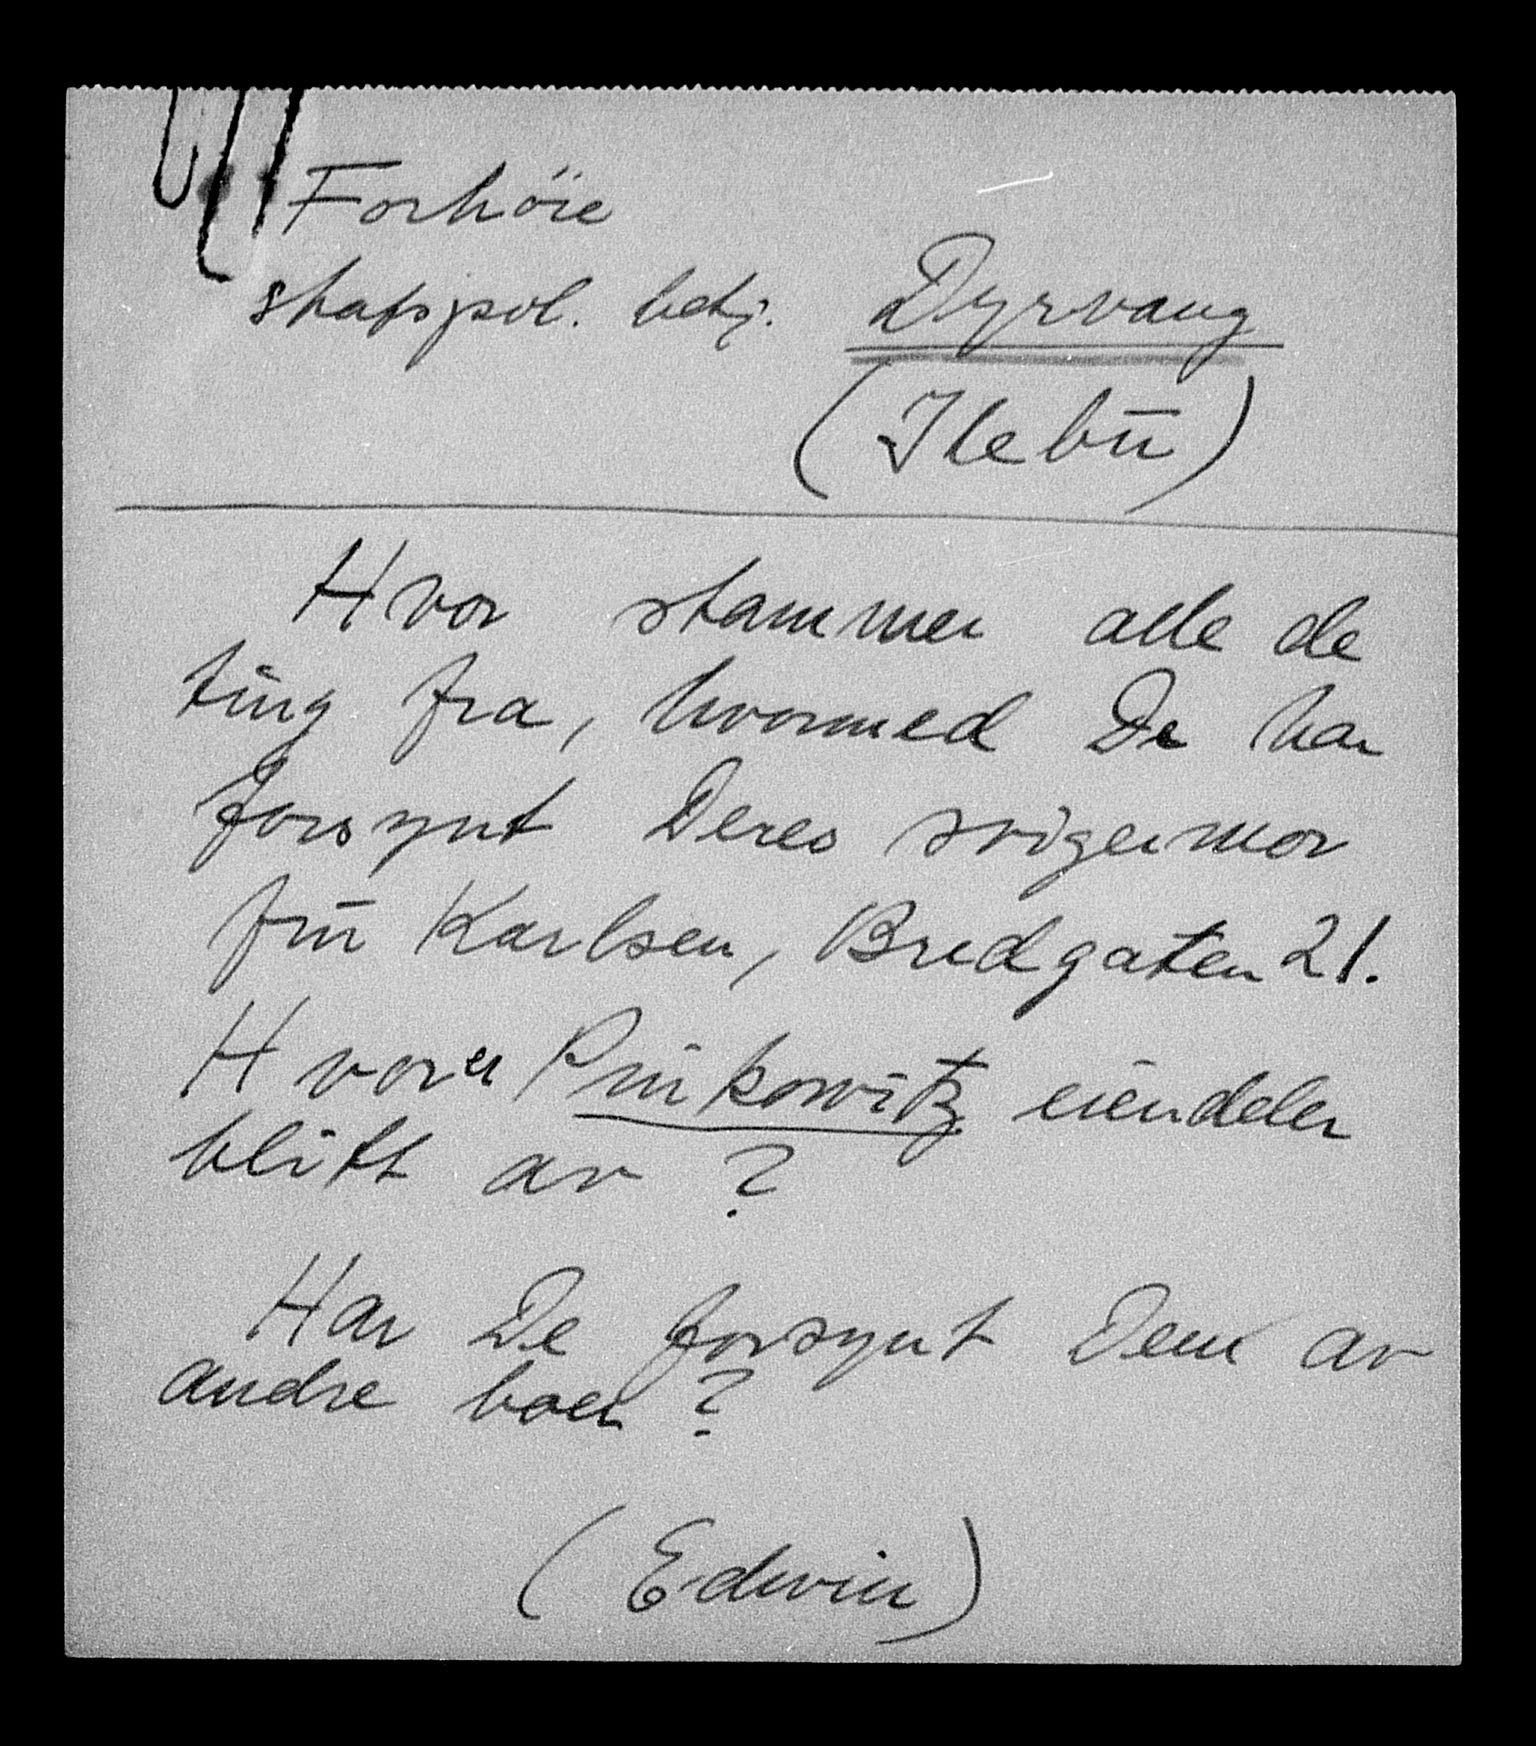 Forhöie
statspol. betj. Dyrvang
(Ilebu)
Hvor stammer alle de
ting fra, hvormed De har
forsynt Deres svigermor
fru Karlsen, Bredgaten 21.
Hvor er Pinkowitz eiendeler
blitt av ?
Har De forsynt Dem av
andre boer ?
(Edwin)